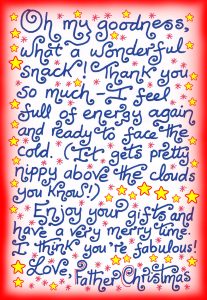 Oh my goodness,
what a wonderful
snack! Thank you
so much. I feel
full of energy again
and ready to face the
cold. (It gets pretty
nippy above the clouds
you know!)
Enjoy your gifts and
have a very merry time.
I think you're fabulous!
Love, Father Christmas